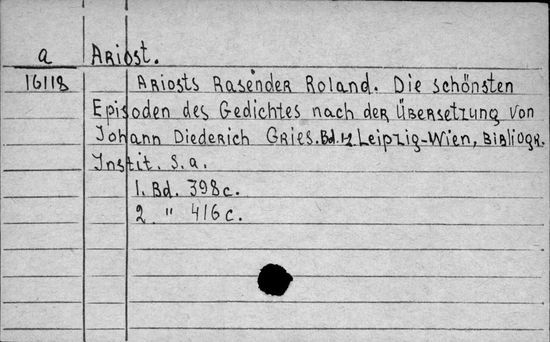 a Ariost.
16118 Ariosts Rasender Roland. Die schönsten
Episoden des Gedichtes nach der Übersetzung von
Johann Diederich Gries. Bd. Leipzig-Wien, Bibliogr.
Instit. S.a.
1. Bd. 398c.
2. " 416c.